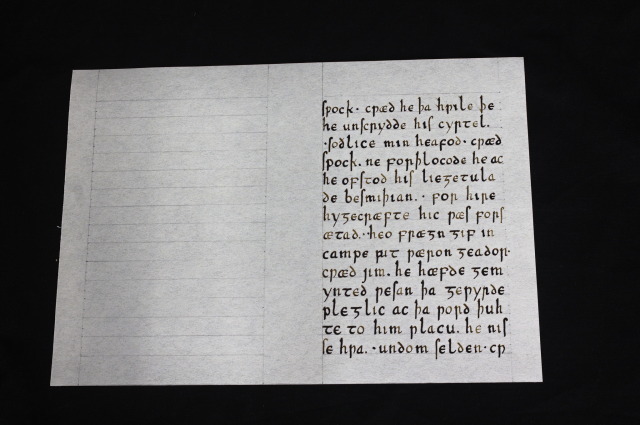 ſpock· cƿæð he þa hƿile þe
he unſcrydde hiſ cyrtel.
·ſoðlice min heafod· cƿæð
ſpock. ne forþlocode he ac
he ofſtod hiſ lieᵹetula
de beſmiþian.· for hire
hyᵹecræfte hic ƿæſ forſ
ætad.· heo fræᵹn ᵹif in
campe ƿit ƿæron ᵹeador·
cƿæð jim. he hæfde ᵹem
ynted ƿeſan þa ᵹeƿyrde
pleᵹlic ac þa ƿord þuh
te to him ƿlacu. he niſ
ſe hƿa.· undom ſelden· cƿ